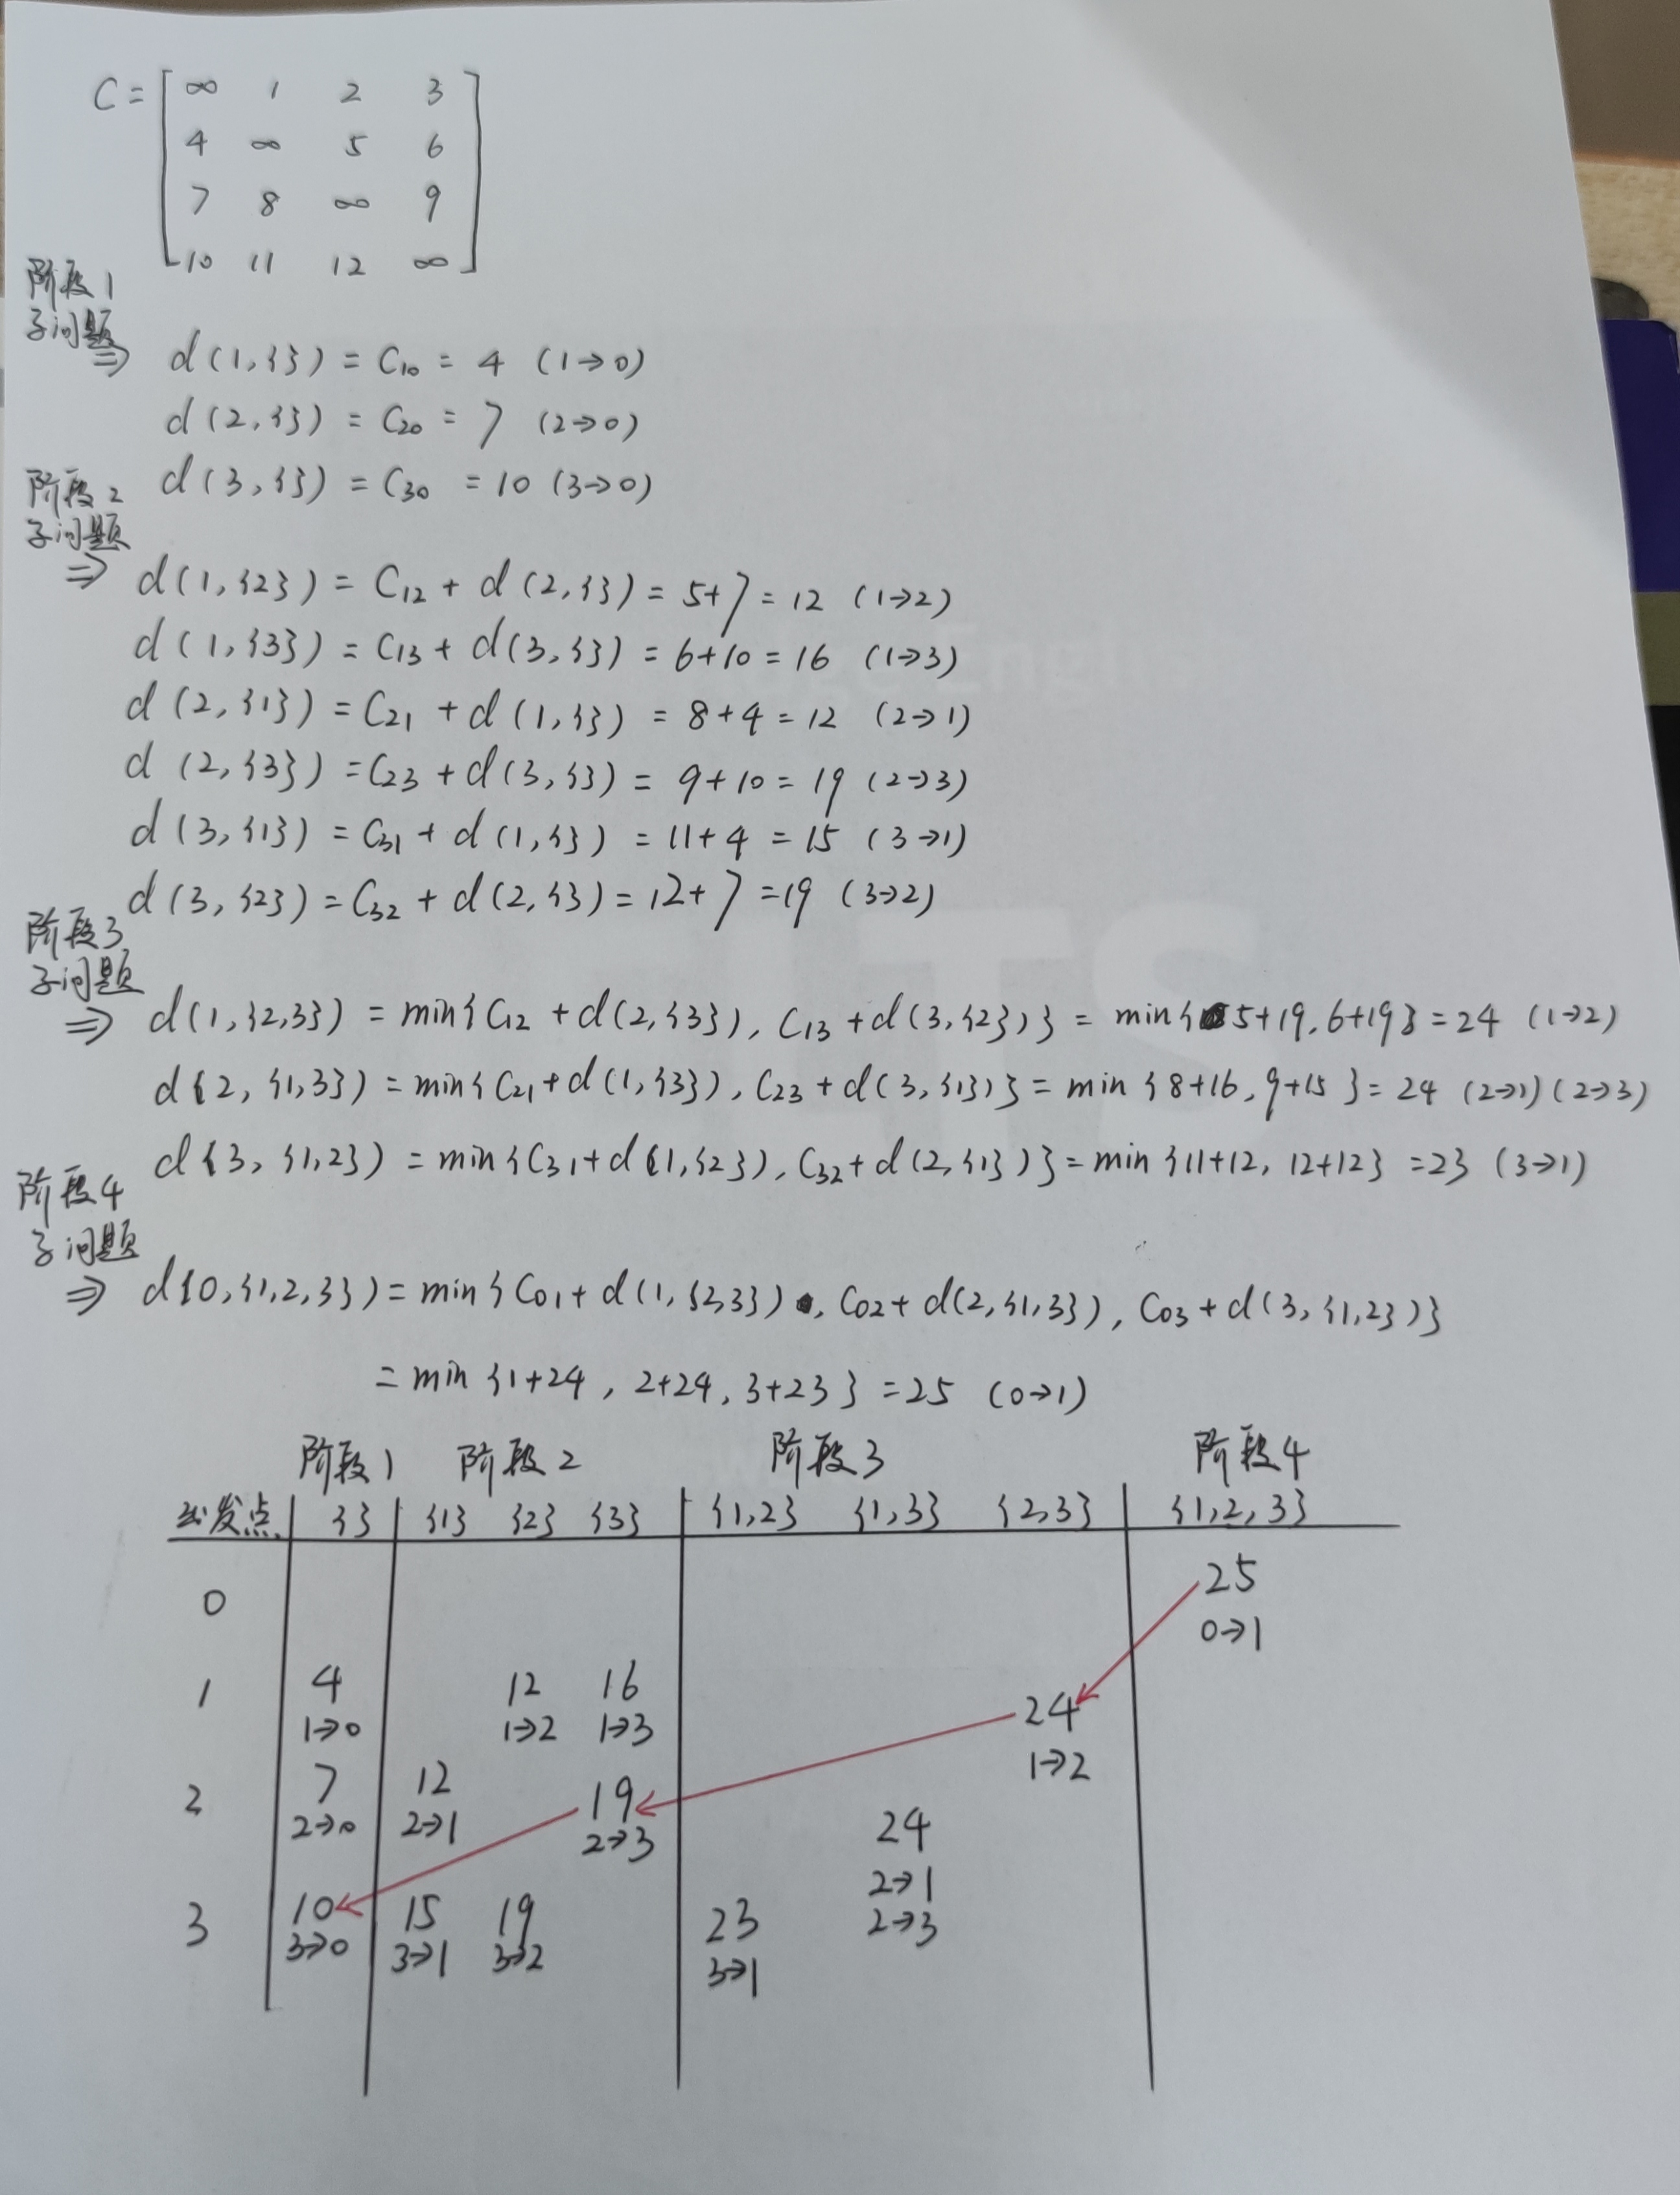 C = [ ∞ 1 2 3
4 ∞ 5 6
7 8 ∞ 9
10 11 12 ∞ ]
阶段1
子问题
⇒ d(1,{}) = C10 = 4 (1→0)
d(2,{}) = C20 = 7 (2→0)
d(3,{}) = C30 = 10 (3→0)
阶段2
子问题
⇒ d(1,{2}) = C12 + d(2,{}) = 5+7 = 12 (1→2)
d(1,{3}) = C13 + d(3,{}) = 6+10 = 16 (1→3)
d(2,{1}) = C21 + d(1,{}) = 8+4 = 12 (2→1)
d(2,{3}) = C23 + d(3,{}) = 9+10 = 19 (2→3)
d(3,{1}) = C31 + d(1,{}) = 11+4 = 15 (3→1)
d(3,{2}) = C32 + d(2,{}) = 12+7 = 19 (3→2)
阶段3
子问题
⇒ d(1,{2,3}) = min{C12 + d(2,{3}), C13 + d(3,{2})} = min{5+19, 6+19} = 24 (1→2)
d{2,{1,3}) = min{C21 + d(1,{3}), C23 + d(3,{1})} = min{8+16, 9+15} = 24 (2→1)(2→3)
d{3,{1,2}) = min{C31 + d(1,{2}), C32 + d(2,{1})} = min{11+12, 12+12} = 23 (3→1)
阶段4
子问题
⇒ d{0,{1,2,3}) = min{C01 + d(1,{2,3}), C02 + d(2,{1,3}), C03 + d(3,{1,2})}
= min{1+24, 2+24, 3+23} = 25 (0→1)
阶段1 阶段2 阶段3 阶段4
出发点 {} {1} {2} {3} {1,2} {1,3} {2,3} {1,2,3}
0 25
0→1
1 4 12 16 24
1→0 1→2 1→3 1→2
2 7 12 19 24
2→0 2→1 2→3 2→1
2→3
3 10 15 19 23
3→0 3→1 3→2 3→1